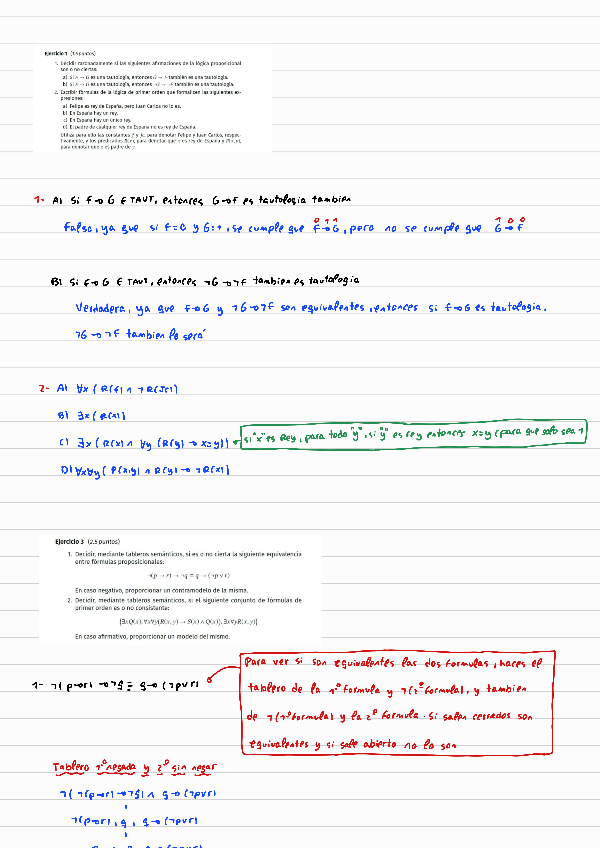 Ejercicio 1 (1.5 puntos)
1. Decidir razonadamente si las siguientes afirmaciones de la lógica proposicional
son o no ciertas.
a) Si F → G es una tautología, entonces G → F también es una tautología.
b) Si F → G es una tautología, entonces ¬G → ¬F también es una tautología.
2. Escribir fórmulas de la lógica de primer orden que formalicen las siguientes ex-
presiones.
a) Felipe es rey de España, pero Juan Carlos no lo es.
b) En España hay un rey.
c) En España hay un único rey.
d) El padre de cualquier rey de España no es rey de España.
Utiliza para ello las constantes f y jc, para denotar Felipe y Juan Carlos, respec-
tivamente, y los predicados R(x), para denotar que x es rey de España y P(x, y),
para denotar que x es padre de y.
1- A) Si F→G ∈ TAUT, entonces G→F es tautologia tambien
0 1 1 1 0 0
Falso, ya que si F=0 y G=1, se cumple que F→G, pero no se cumple que G→F
B) Si F→G ∈ TAUT, entonces ¬G→¬F tambien es tautologia
Verdadera, ya que F→G y ¬G→¬F son equivalentes, entonces si F→G es tautologia.
¬G→¬F tambien lo será
2- A) ∀x (R(f) ∧ ¬R(Jc))
B) ∃x (R(x))
C) ∃x (R(x) ∧ ∀y (R(y) → x=y)) → si "x" es Rey, para todo "y", si "y" es rey entonces x=y (para que solo sea 1
D) ∀x∀y ( P(x,y) ∧ R(y) → ¬R(x))
Ejercicio 3 (2.5 puntos)
1. Decidir, mediante tableros semánticos, si es o no cierta la siguiente equivalencia
entre fórmulas proposicionales:
¬(p → r) → ¬q ≡ q → (¬p ∨ r)
En caso negativo, proporcionar un contramodelo de la misma.
2. Decidir, mediante tableros semánticos, si el siguiente conjunto de fórmulas de
primer orden es o no consistente:
{∃xQ(x), ∀x∀y(R(x, y) → S(x) ∧ Q(x)), ∃x∀yR(x, y)}
En caso afirmativo, proporcionar un modelo del mismo.
1- ¬(p→r) →¬q ≡ q→(¬p∨r)
Para ver si son equivalentes las dos formulas, haces el
tablero de la 1º formula y ¬(2º formula), y tambien
de ¬(1º formula) y la 2º formula. Si salen cerrados son
equivalentes y si sale abierto no lo son
Tablero 1º negada y 2º sin negar
¬(¬(p→r)→¬q) ∧ q→(¬p∨r)
¬(p→r), q, q→(¬p∨r)